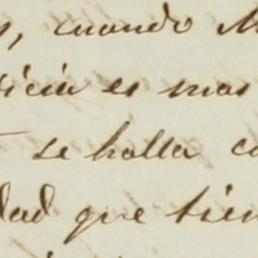 , cuando
es mas
se halla
dad que tien